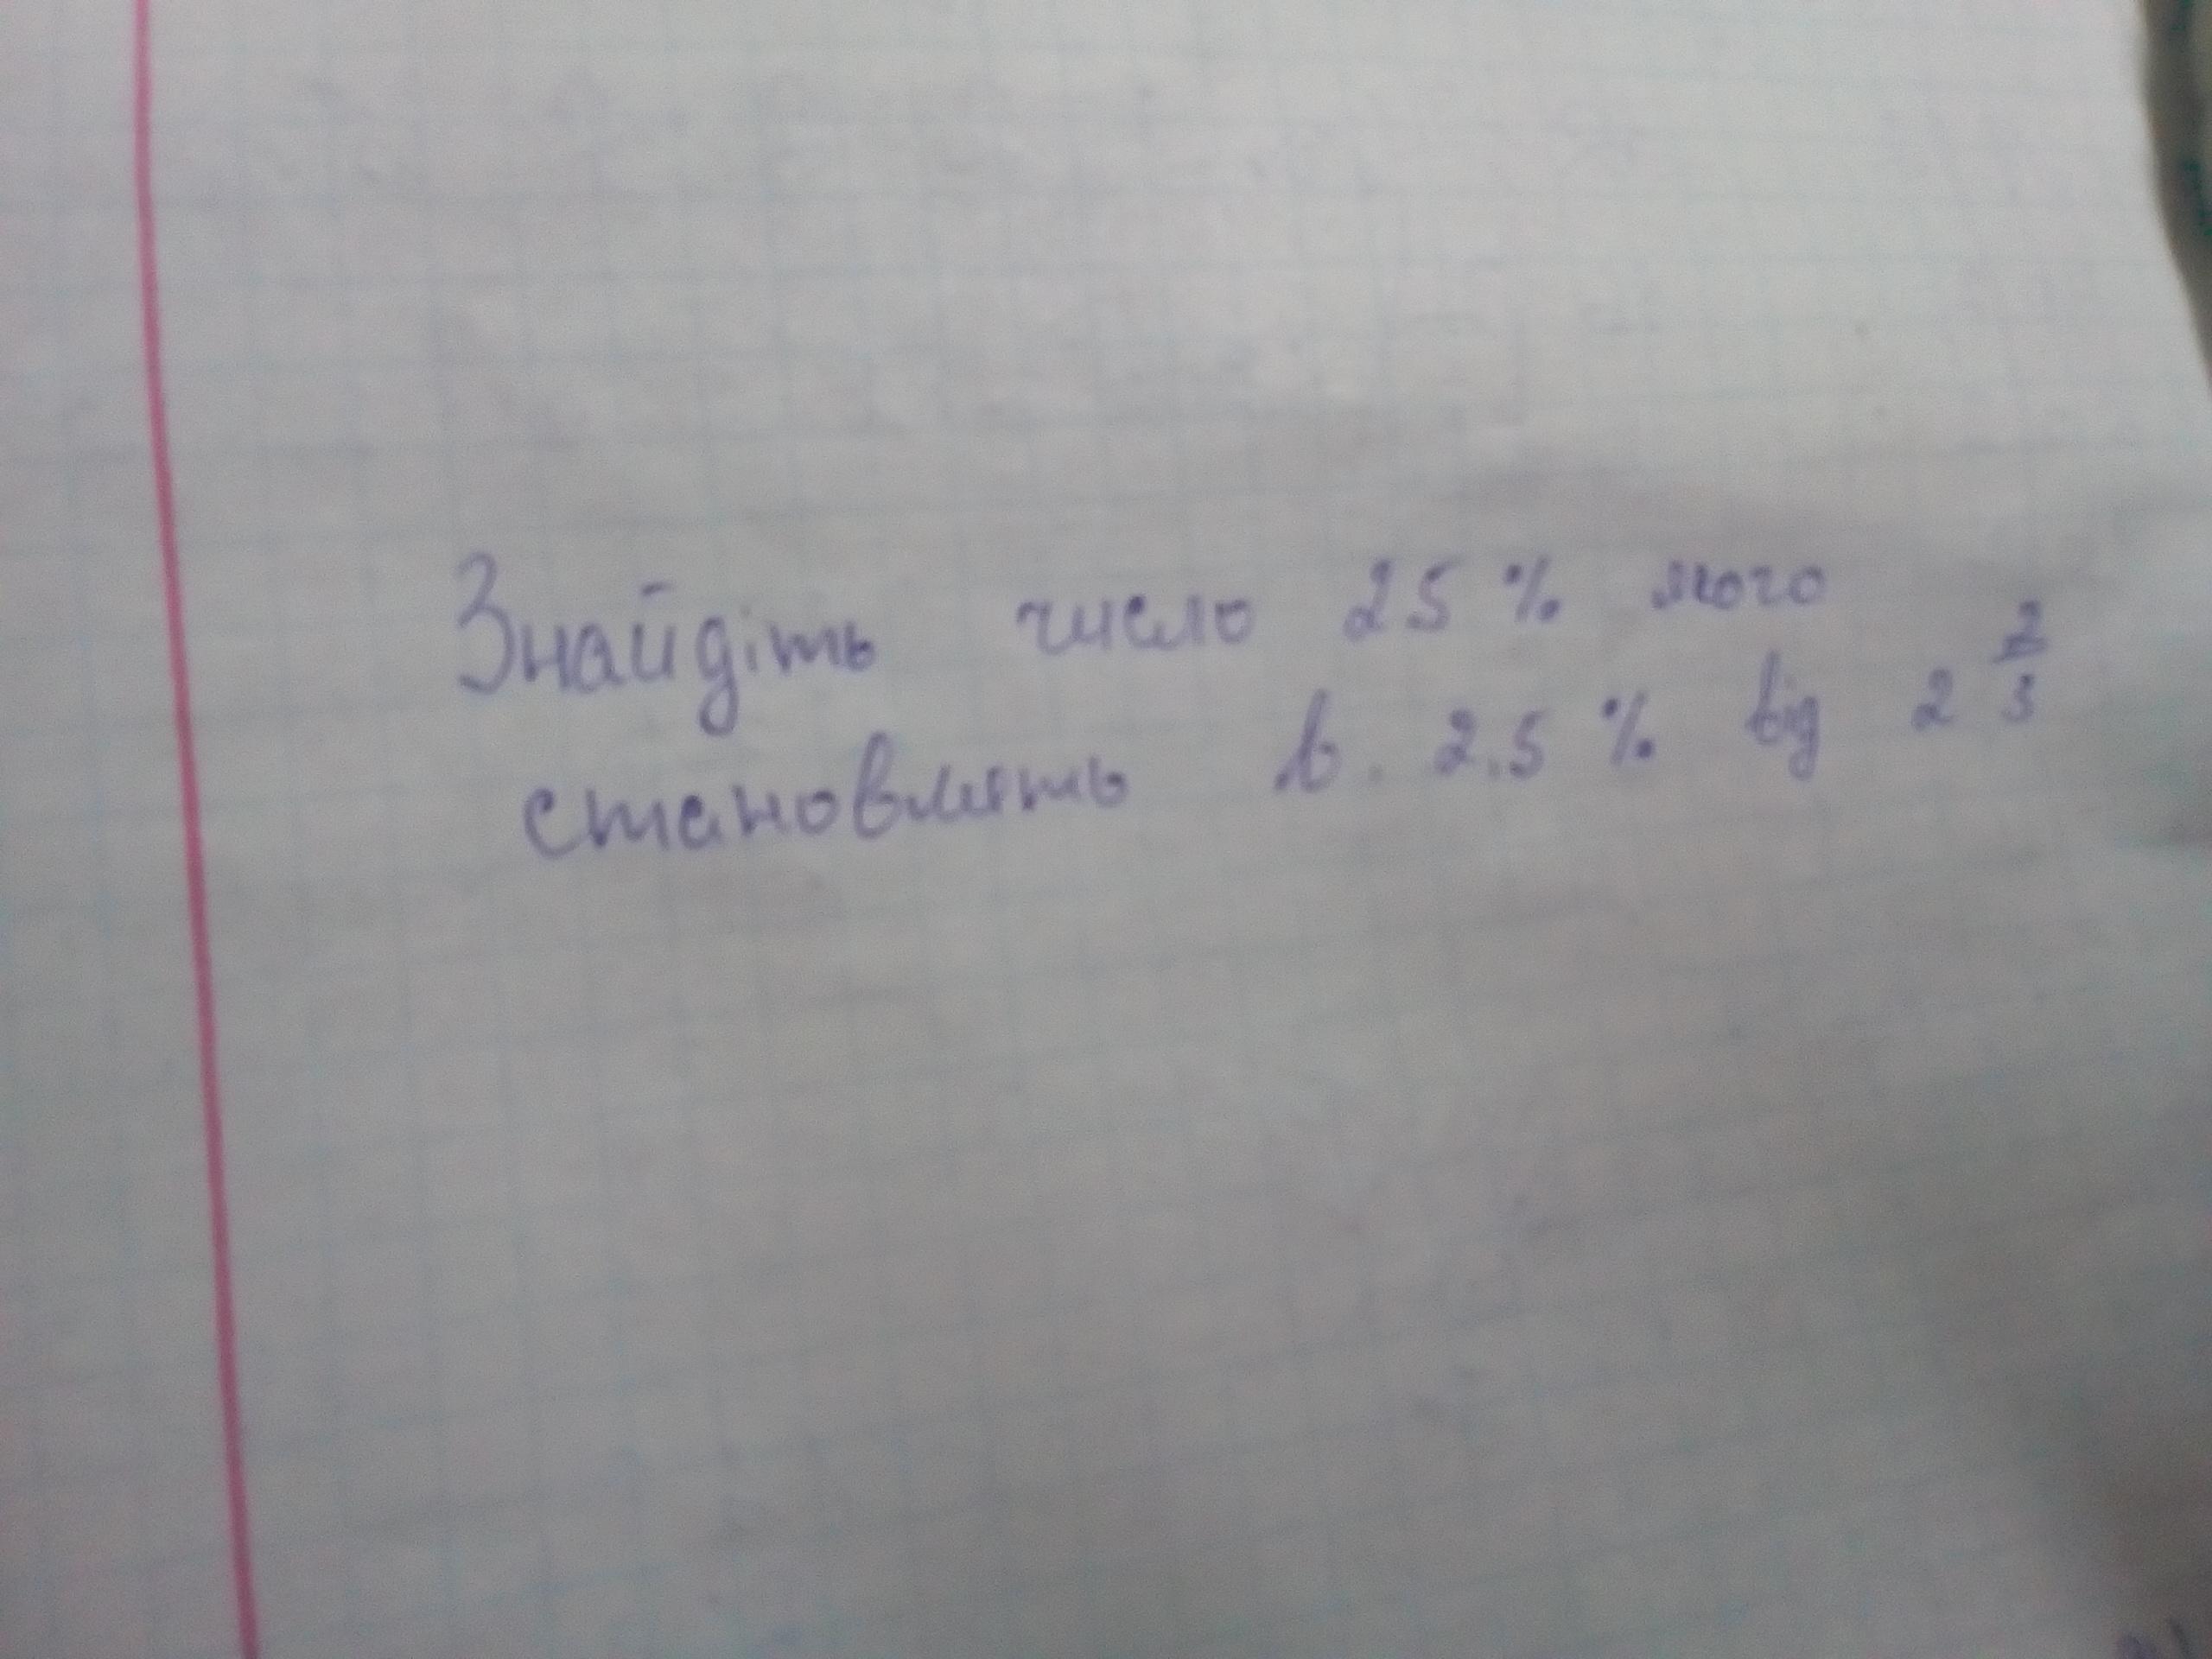 Знайдіть число 25 % якого
становлять в. 2.5 % від 2 2/3